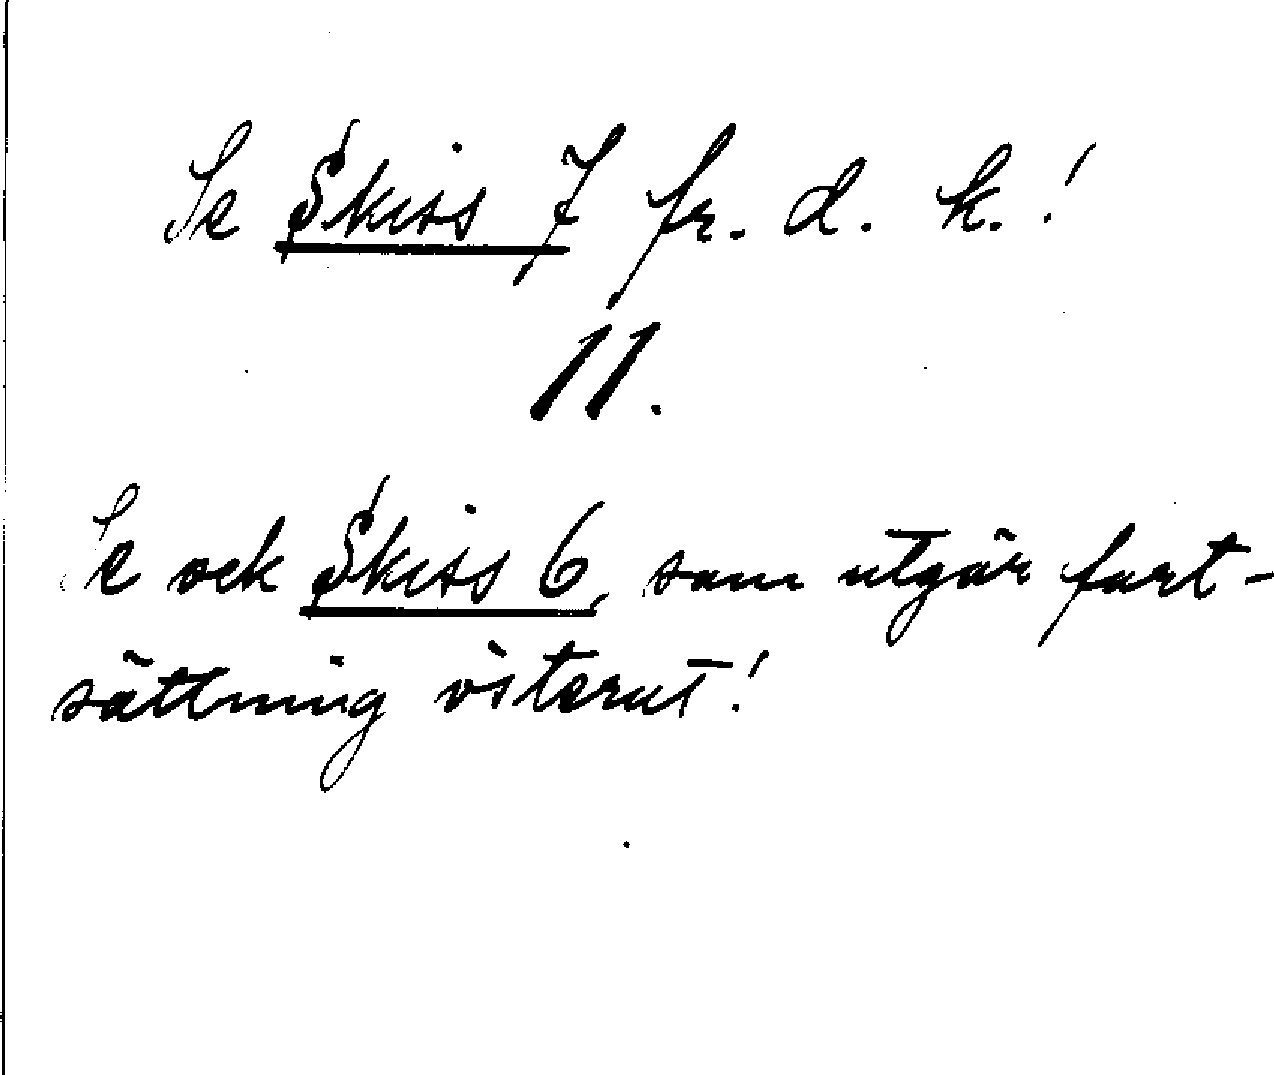 Se Skiss 7 fr. d. k.!
11.
Se ock Skiss 6, som utgör fort-
sättning österut!